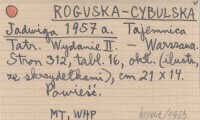 "ROGUSKA-CYBULSKA"
Jadwiga 1957 a. Tajemnica
Tatr. Wydanie II. - Warszawa.
Stron 312, tabl. 16, okł. (ilustr.,
ze skrzydełkami), cm 21 x 14.
Powieść.
MT, WHP